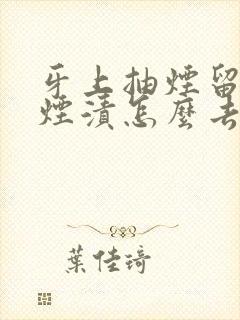 牙上抽煙留
煙漬怎麼去
葉佳琦